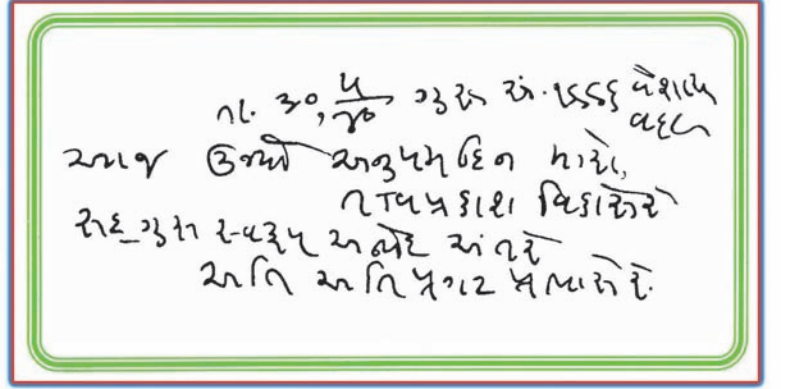 તા. ૩૦, ૫/૪૦ ગુરૂ સં. ૧૯૯૬ વૈશાખ
વદ
આજ ઉગ્યો અનુપમ દિન મારો,
તત્વપ્રકાશ વિકાસેરે
સદ્ગુરુ સ્વરૂપ અભેદ અંતરે
અતિ અતિ પ્રગટ પ્રભાસે રે.